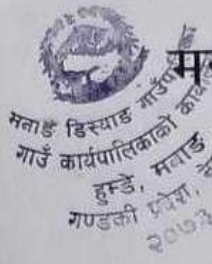 मनाङ डिस्याङ गाउँपालिका
गाउँ कार्यपालिकाको कार्या
हुम्डे, मनाङ
गण्डकी प्रदेश, ने
२०७३
म